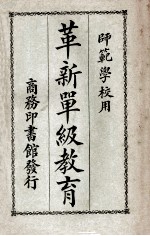 師範學校用
革新單級教育
商務印書館發行